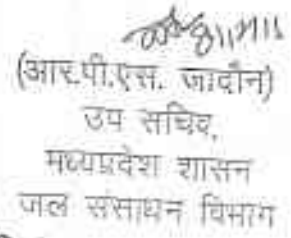 (आर.पी.एस. जादौन)
उप सचिव,
मध्यप्रदेश शासन
जल संसाधन विभाग